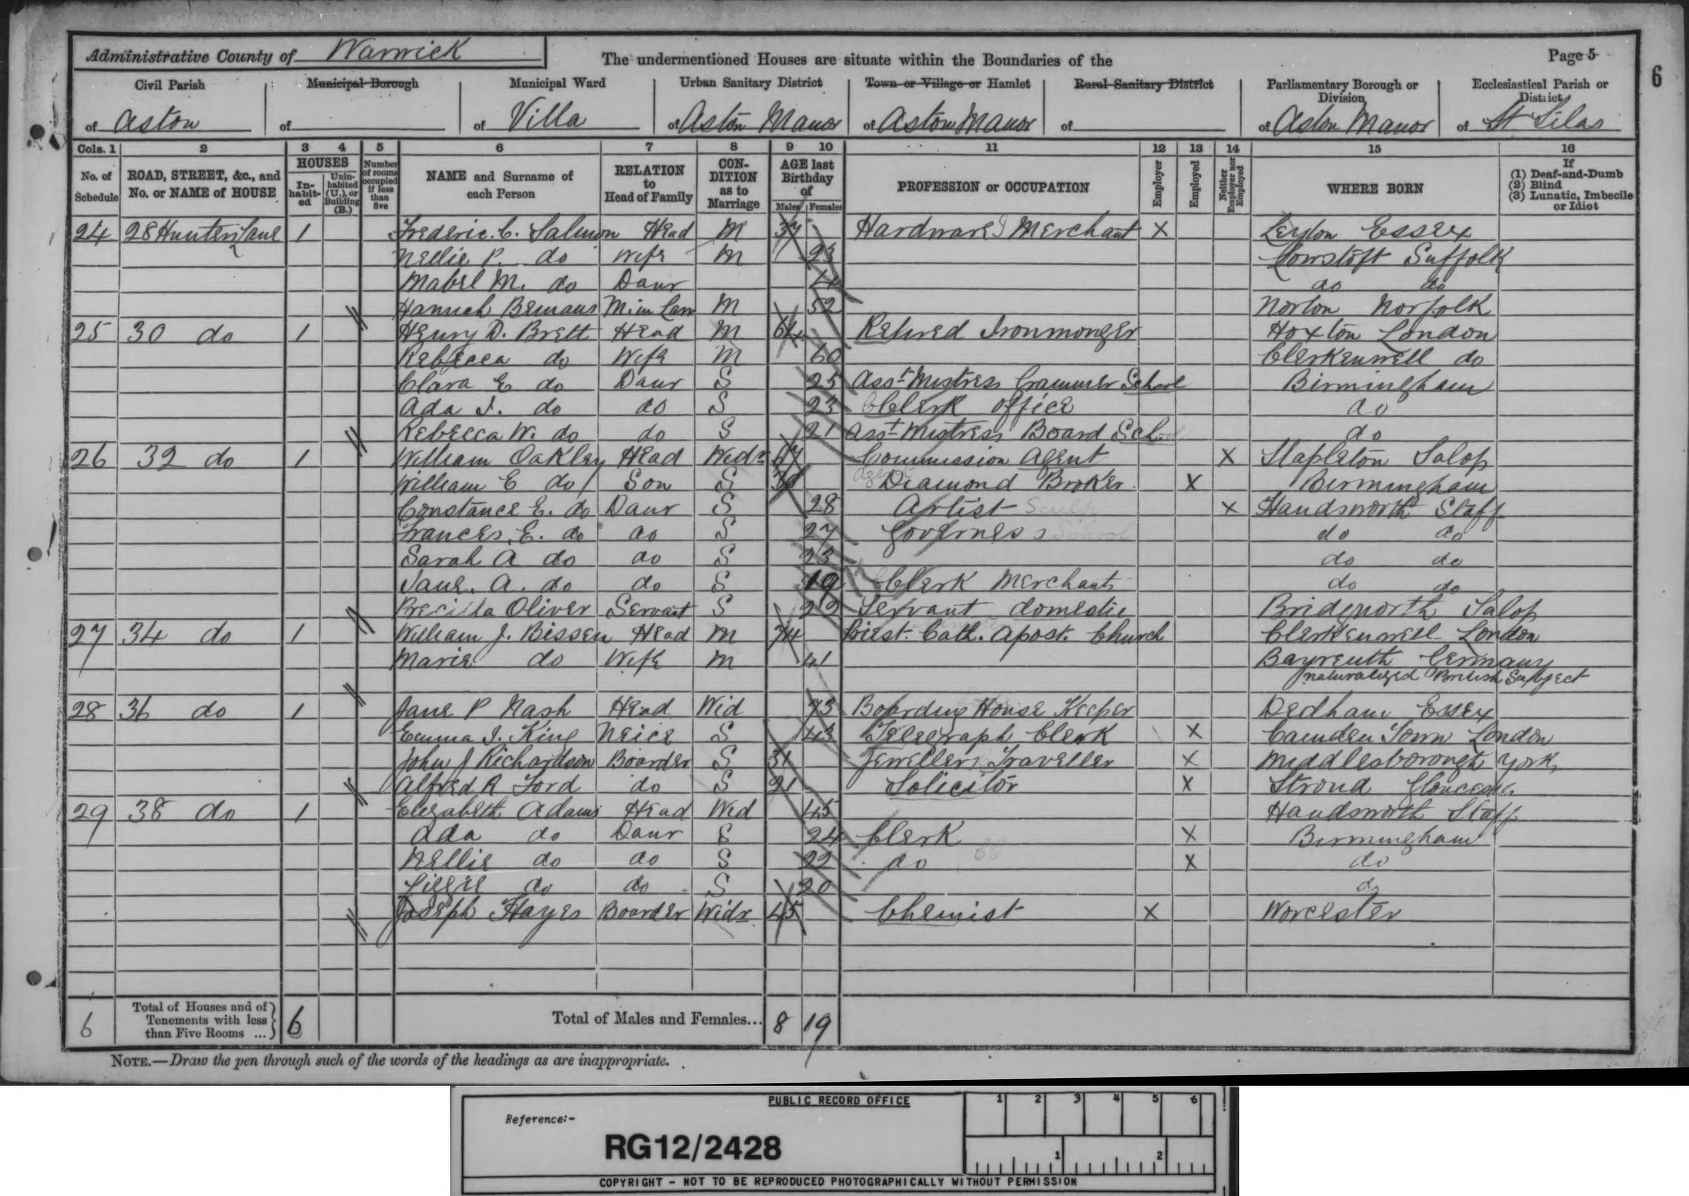 Administrative County of Warwick
The undermentioned Houses are situate within the Boundaries of the
Page 5
6
Civil Parish Municipal Borough Municipal Ward Urban Sanitary District Town or Village or Hamlet Rural Sanitary District Parliamentary Borough or Division Ecclesiastical Parish or District
of Aston of of Villa of Aston Manor of Aston Manor of of Aston Manor of St Silas
Cols. 1 2 3 4 5 6 7 8 9 10 11 12 13 14 15 16
No. of Schedule ROAD, STREET, &c., and No. or NAME of HOUSE HOUSES Inhabited Uninhabited (U.), or Building (B.) Number of rooms occupied if less than five NAME and Surname of each Person RELATION to Head of Family CONDITION as to Marriage AGE last Birthday of Males Females PROFESSION or OCCUPATION Employer Employed Neither Employer nor Employed WHERE BORN If (1) Deaf-and-Dumb (2) Blind (3) Lunatic, Imbecile or Idiot
24 28 Hunters Lane 1 Frederic. C. Salmon Head M 37 Hardware Merchant X Leyton Essex
Nellie P. do Wife M Lowstoft Suffolk
Mabel M. do Daur do do
Hannah M in Law M 52 Norton Norfolk
25 30 do 1 Henry D. Brett Head M 64 Retired Ironmonger Hoxton London
Rebecca do Wife M 60 Clerkenwell do
Clara E do Daur S 25 Asst Mistress Grammer School Birmingham
Ada J. do do S 23 Clerk office do
Rebecca W. do do S 21 Asst Mistress Board Sch. do
26 32 do 1 William Oakley Head Widr 67 Commission Agent X Stapleton Salop
William C do Son S Diamond Broker X Birmingham
Constance E. do Daur S 28 Artist X Handsworth Staff
Frances. E. do do S 27 Governess do do
Sarah A do do S 23 do do
Jane. A. do do S 19 Clerk Merchants do do
Oliver Servant S 22 Servant domestic Bridgnorth Salop
27 34 do 1 William J. Bissen Head M 74 Priest. Cath. Apost. Church Clerkenwell London
Marie do Wife M 41 Bayreuth Germany
naturalized British Subject
28 36 do 1 Jane P Nash Head Wid 73 Boarding House Keeper Dedham Essex
Emma J. King Neice S 43 Telegraph Clerk X Camden Town London
John J Richardson Boarder S 31 Jewellers Traveller X Middlesborough York
Alfred R Ford do S Solicitor X Stroud Gloucester
29 38 do 1 Elizabeth Adams Head Wid 45 Handsworth Staff
Ada do Daur S 24 Clerk X Birmingham
Nellie do do S 22 do X do
do do S 20 do
Joseph Hayes Boarder Widr 45 Chemist X Worcester
6 Total of Houses and of Tenements with less than Five Rooms ... 6 Total of Males and Females... 8 19
NOTE.—Draw the pen through such of the words of the headings as are inappropriate.
PUBLIC RECORD OFFICE
1 2 3 4 5 6
Reference:-
RG12/2428
1 2
COPYRIGHT - NOT TO BE REPRODUCED PHOTOGRAPHICALLY WITHOUT PERMISSION